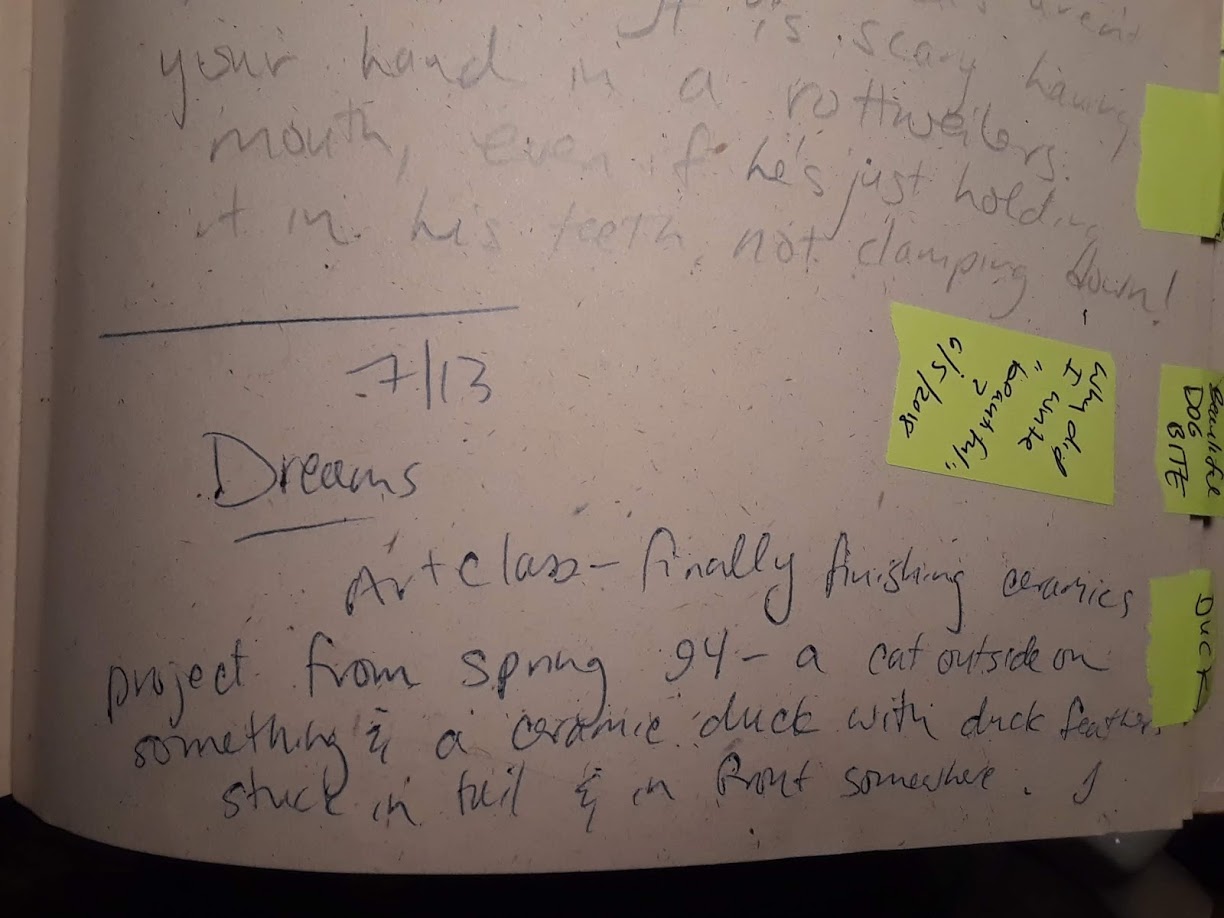 aren't
It is scary having
your hand in a rottweilers
mouth, even if he's just holding
it in his teeth, not clamping down!
7/13
Dreams
Art class - finally finishing ceramics
project from spring 94 - a cat outside on
something & a ceramic duck with duck feathers
stuck in tail & in front somewhere. I
Why did
I write
"beautiful"
?
6/5/2018
Beautiful
DOG
BITE
DUCK